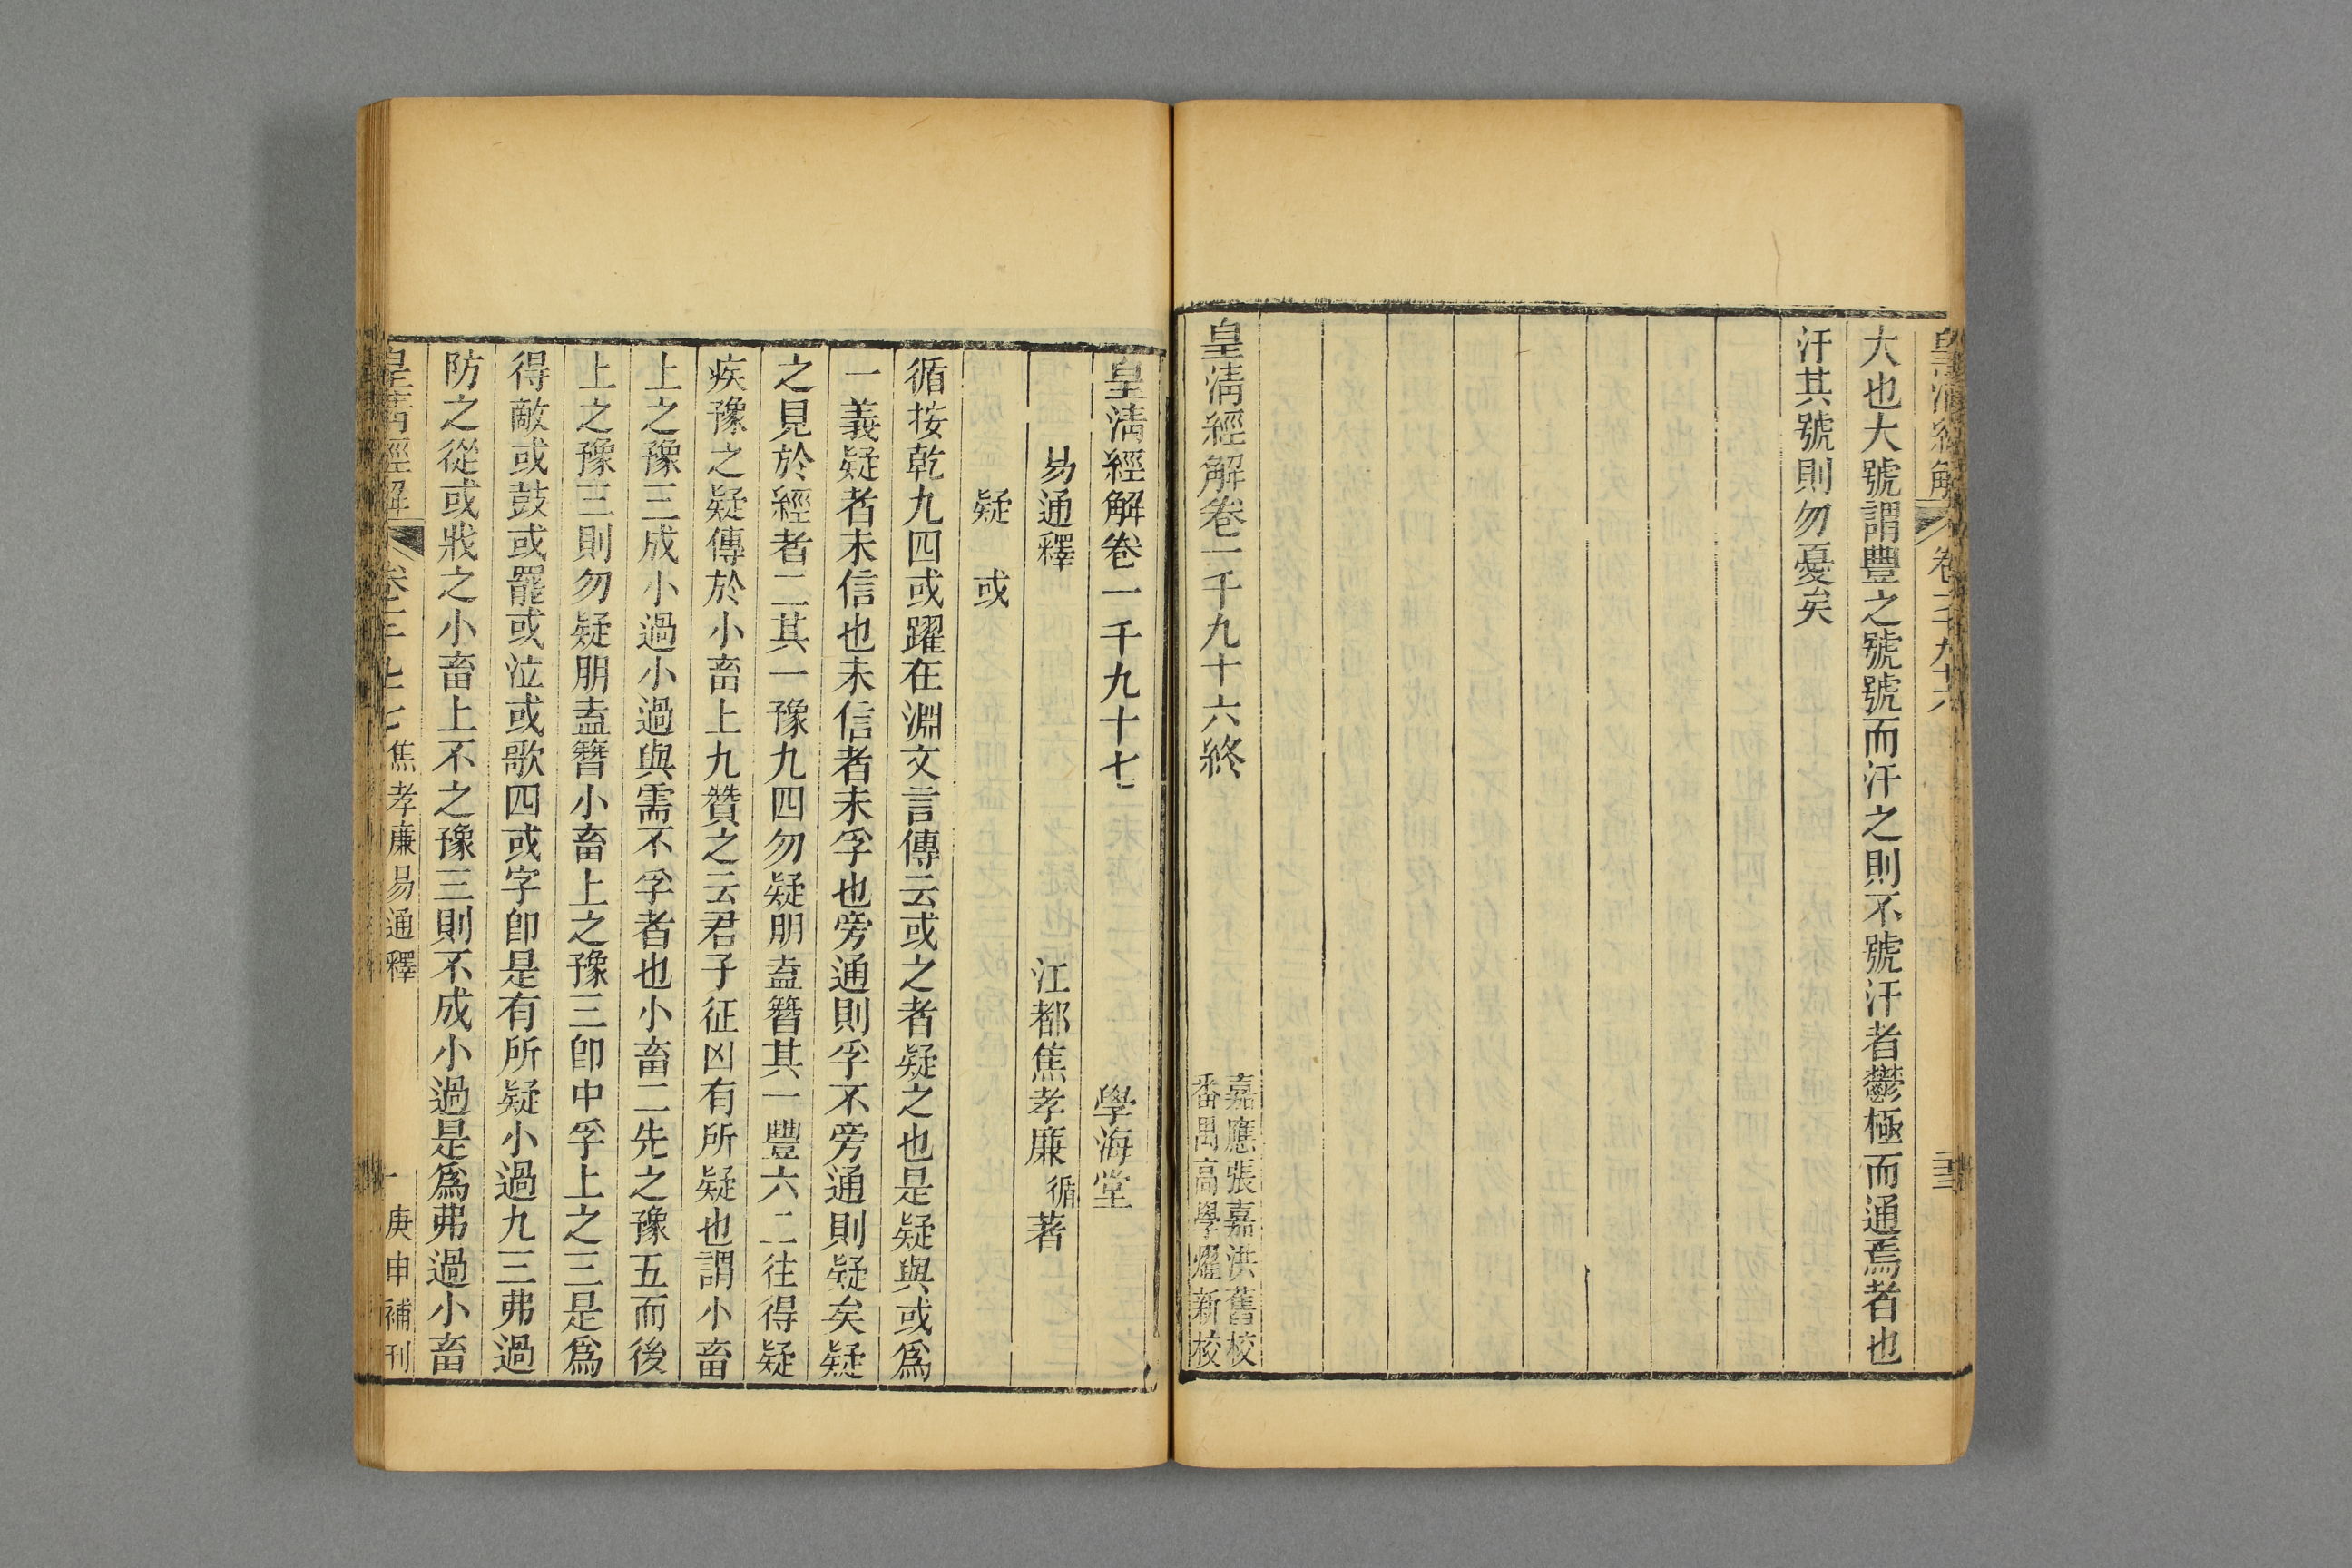 皇清經解
卷一千九十六
大也大號謂豐之號號而汗之則不號汗者鬱極而通焉者也
汗其號則勿憂矣
皇清經解卷一千九十六終
嘉應張嘉洪舊校
番禺高學燿新校
皇清經解卷一千九十七
學海堂
易通釋
江都焦孝廉循著
疑 或
循按乾九四或躍在淵文言傳云或之者疑之也是疑與或爲
一義疑者未信也未信者未孚也旁通則孚不旁通則疑矣疑
之見於經者二其一豫九四勿疑朋盍簪其一豐六二往得疑
疾豫之疑傳於小畜上九贊之云君子征凶有所疑也謂小畜
上之豫三成小過小過與需不孚者也小畜二先之豫五而後
上之豫三則勿疑朋盍簪小畜上之豫三卽中孚上之三是爲
得敵或鼓或罷或泣或歌四或字卽是有所疑小過九三弗過
防之從或戕之小畜上不之豫三則不成小過是爲弗過小畜
皇清經解
焦孝廉易通釋
一
庚申補刊